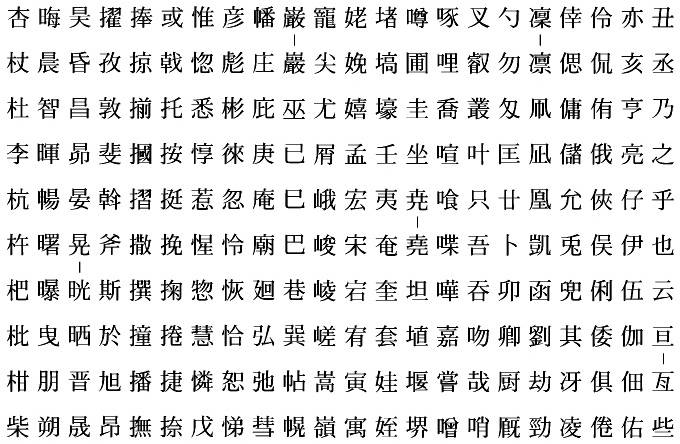 丑丞乃之乎也云亘｜亙些
亦亥亨亮仔伊伍伽佃佑
伶侃侑俄俠俣俐倭俱倦
倖偲傭儲允兎兜其冴凌
凜｜凛凧凪凰凱函劉劫勁
勺勿匁匡廿卜卯卿厨厩
叉叡叢叶只吾吞吻哉哨
啄哩喬喧喰喋嘩嘉嘗噌
噂圃圭坐尭｜堯坦埴堰堺
堵塙壕壬夷奄奎套娃姪
姥娩嬉孟宏宋宕宥寅寓
寵尖尤屑峨峻崚嵯嵩嶺
巌｜巖巫已巳巴巷巽帖幌
幡庄庇庚庵廟廻弘弛彗
彦彪彬徠忽怜恢恰恕悌
惟惚悉惇惹惺惣慧憐戊
或戟托按挺挽掬捲捷捺
捧掠揃摑摺撒撰撞播撫
擢孜敦斐斡斧斯於旭昂
昊昏昌昴晏晃｜晄晒晋晟
晦晨智暉暢曙曝曳朋朔
杏杖杜李杭杵杷枇柑柴